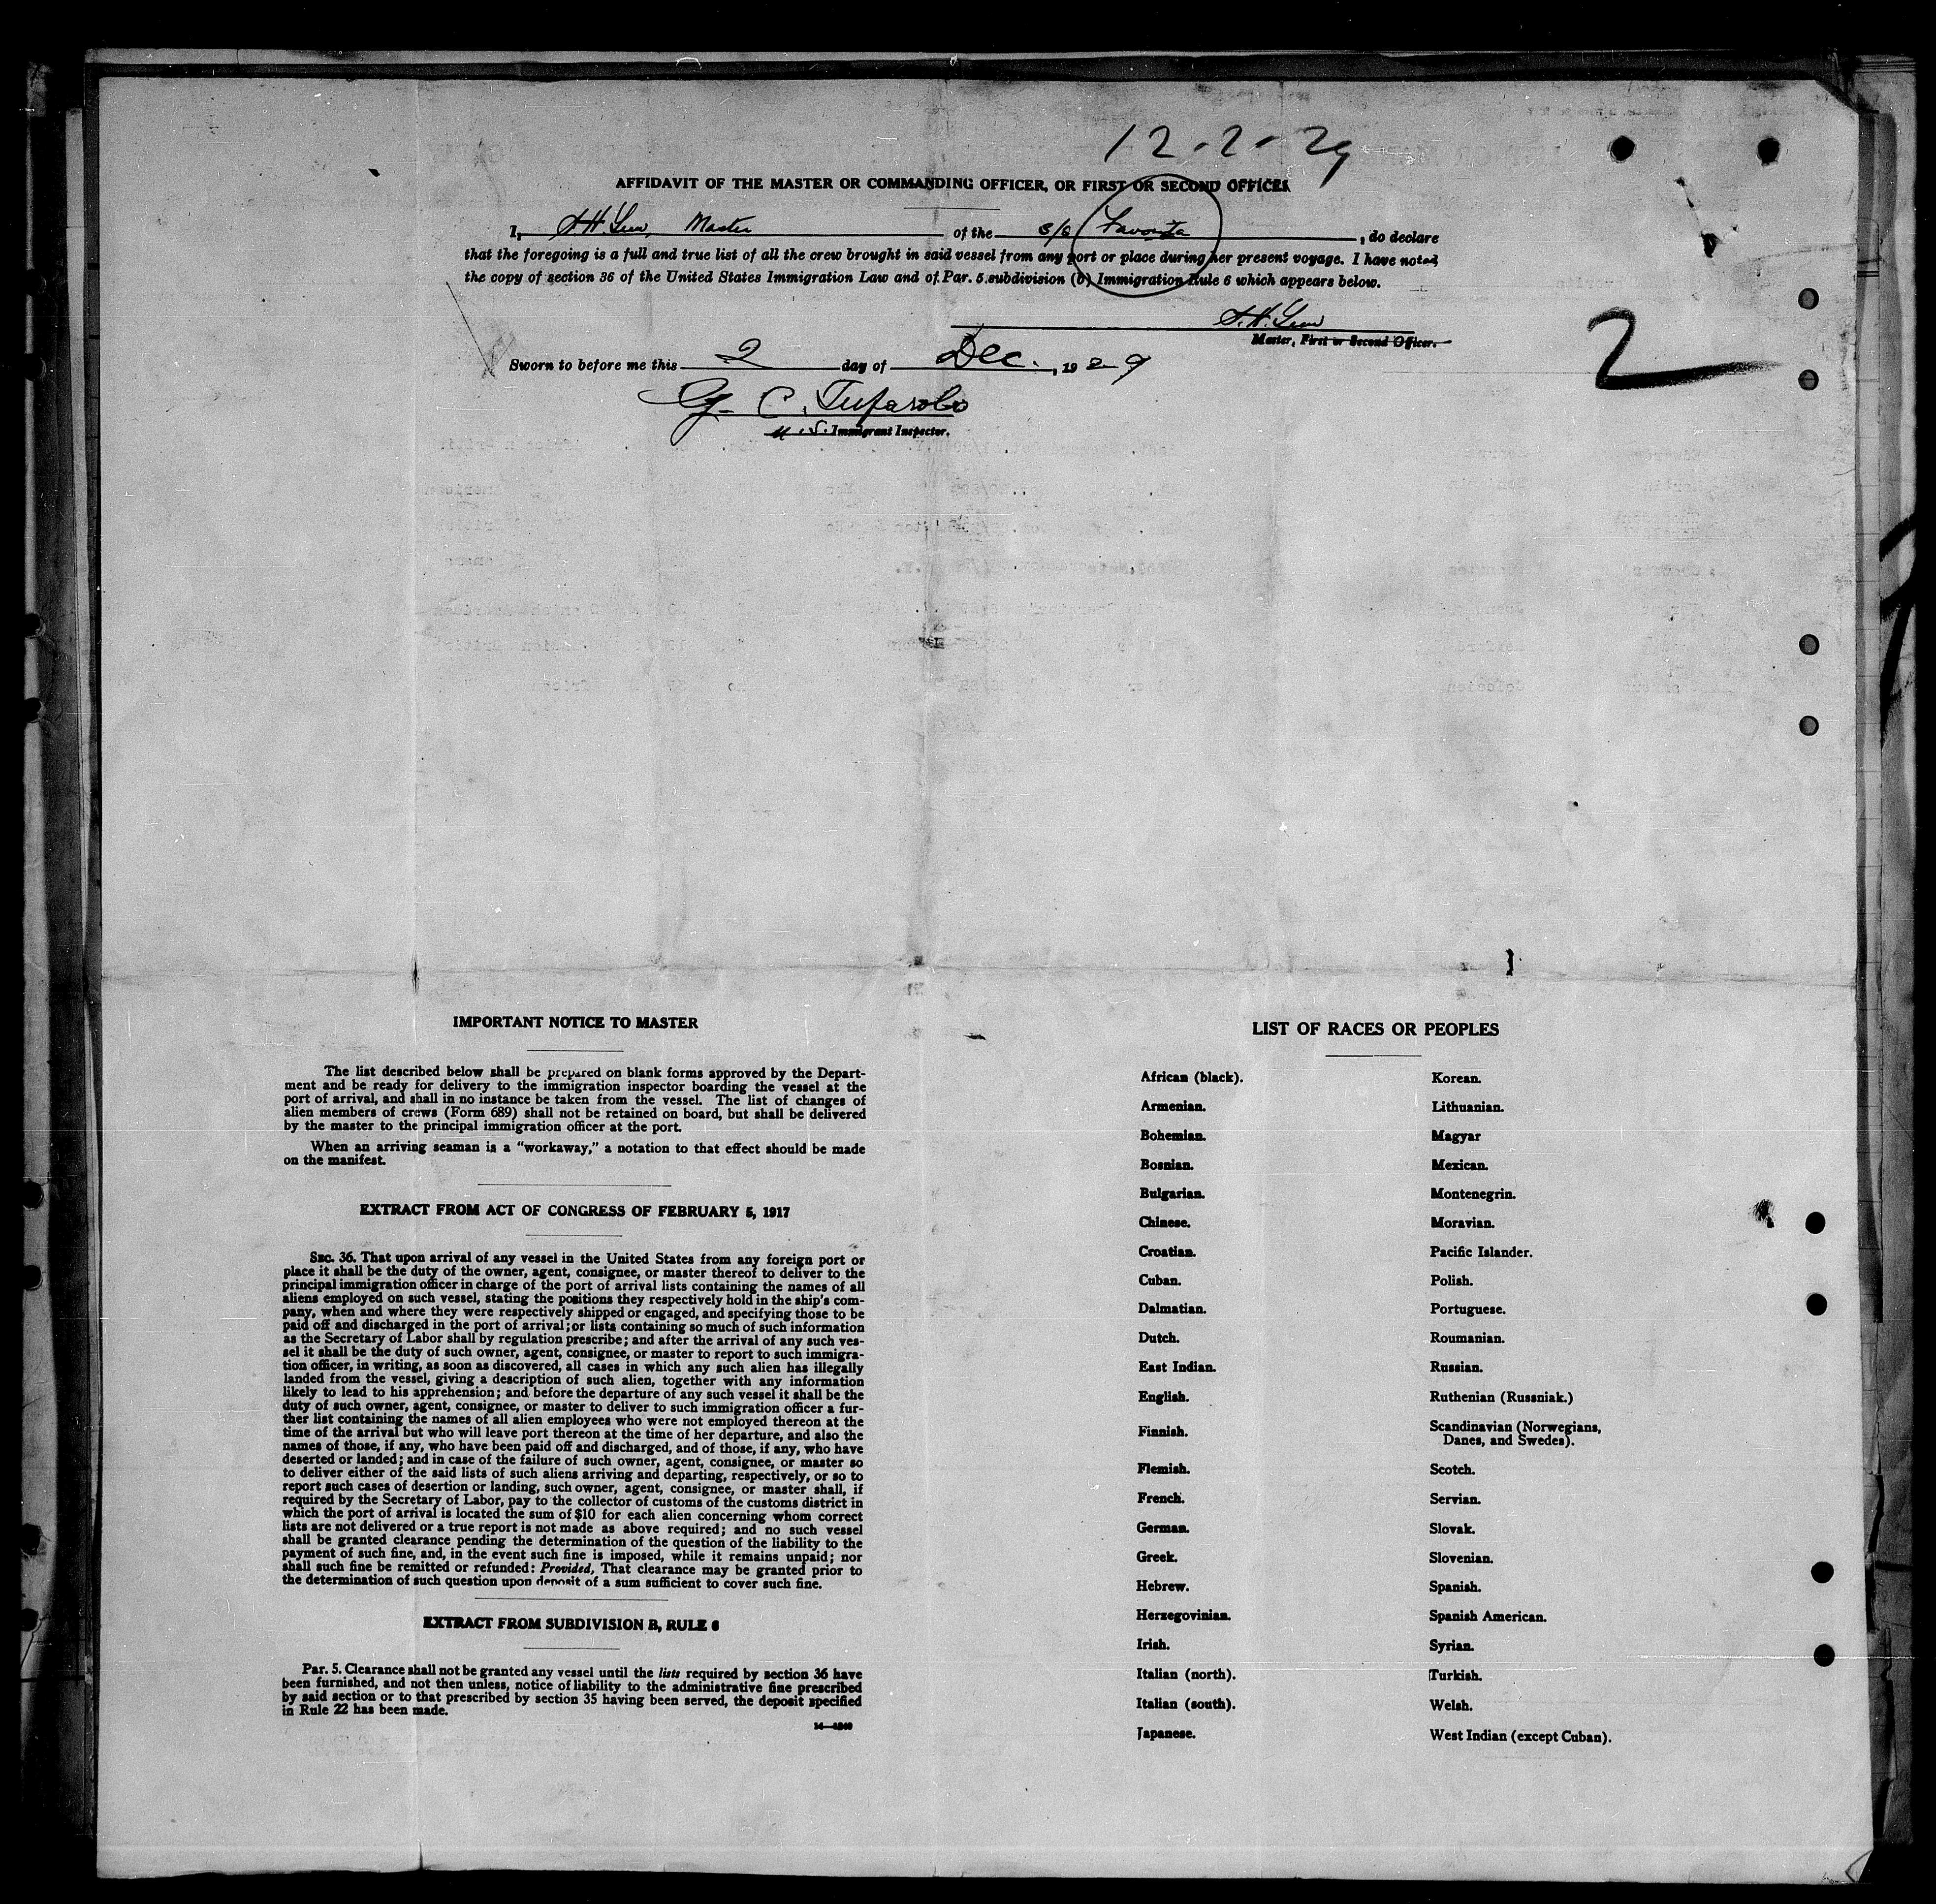 12-2-29
AFFIDAVIT OF THE MASTER OR COMMANDING OFFICER, OR FIRST OR SECOND OFFICER
I, Master of the S/S Favorita, do declare
that the foregoing is a full and true list of all the crew brought in said vessel from any port or place during her present voyage. I have noted
the copy of section 36 of the United States Immigration Law and of Par. 5 subdivision (b) Immigration Rule 6 which appears below.
Master, First or Second Officer.
2
Sworn to before me this 2 day of Dec., 1929
G. C.
U.S. Immigrant Inspector.
IMPORTANT NOTICE TO MASTER
The list described below shall be prepared on blank forms approved by the Depart-
ment and be ready for delivery to the immigration inspector boarding the vessel at the
port of arrival, and shall in no instance be taken from the vessel. The list of changes of
alien members of crews (Form 689) shall not be retained on board, but shall be delivered
by the master to the principal immigration officer at the port.
When an arriving seaman is a "workaway," a notation to that effect should be made
on the manifest.
EXTRACT FROM ACT OF CONGRESS OF FEBRUARY 5, 1917
SEC. 36. That upon arrival of any vessel in the United States from any foreign port or
place it shall be the duty of the owner, agent, consignee, or master thereof to deliver to the
principal immigration officer in charge of the port of arrival lists containing the names of all
aliens employed on such vessel, stating the positions they respectively hold in the ship's com-
pany, when and where they were respectively shipped or engaged, and specifying those to be
paid off and discharged in the port of arrival; or lists containing so much of such information
as the Secretary of Labor shall by regulation prescribe; and after the arrival of any such ves-
sel it shall be the duty of such owner, agent, consignee, or master to report to such immigra-
tion officer, in writing, as soon as discovered, all cases in which any such alien has illegally
landed from the vessel, giving a description of such alien, together with any information
likely to lead to his apprehension; and before the departure of any such vessel it shall be the
duty of such owner, agent, consignee, or master to deliver to such immigration officer a fur-
ther list containing the names of all alien employees who were not employed thereon at the
time of the arrival but who will leave port thereon at the time of her departure, and also the
names of those, if any, who have been paid off and discharged, and of those, if any, who have
deserted or landed; and in case of the failure of such owner, agent, consignee, or master so
to deliver either of the said lists of such aliens arriving and departing, respectively, or so to
report such cases of desertion or landing, such owner, agent, consignee, or master shall, if
required by the Secretary of Labor, pay to the collector of customs of the customs district in
which the port of arrival is located the sum of $10 for each alien concerning whom correct
lists are not delivered or a true report is not made as above required; and no such vessel
shall be granted clearance pending the determination of the question of the liability to the
payment of such fine, and, in the event such fine is imposed, while it remains unpaid; nor
shall such fine be remitted or refunded: Provided, That clearance may be granted prior to
the determination of such question upon deposit of a sum sufficient to cover such fine.
EXTRACT FROM SUBDIVISION B, RULE 6
Par. 5. Clearance shall not be granted any vessel until the lists required by section 36 have
been furnished, and not then unless, notice of liability to the administrative fine prescribed
by said section or to that prescribed by section 35 having been served, the deposit specified
in Rule 22 has been made.
LIST OF RACES OR PEOPLES
African (black).
Armenian.
Bohemian.
Bosnian.
Bulgarian.
Chinese.
Croatian.
Cuban.
Dalmatian.
Dutch.
East Indian.
English.
Finnish.
Flemish.
French.
German.
Greek.
Hebrew.
Herzegovinian.
Irish.
Italian (north).
Italian (south).
Japanese.
Korean.
Lithuanian.
Magyar
Mexican.
Montenegrin.
Moravian.
Pacific Islander.
Polish.
Portuguese.
Roumanian.
Russian.
Ruthenian (Russniak.)
Scandinavian (Norwegians,
Danes, and Swedes).
Scotch.
Servian.
Slovak.
Slovenian.
Spanish.
Spanish American.
Syrian.
Turkish.
Welsh.
West Indian (except Cuban).